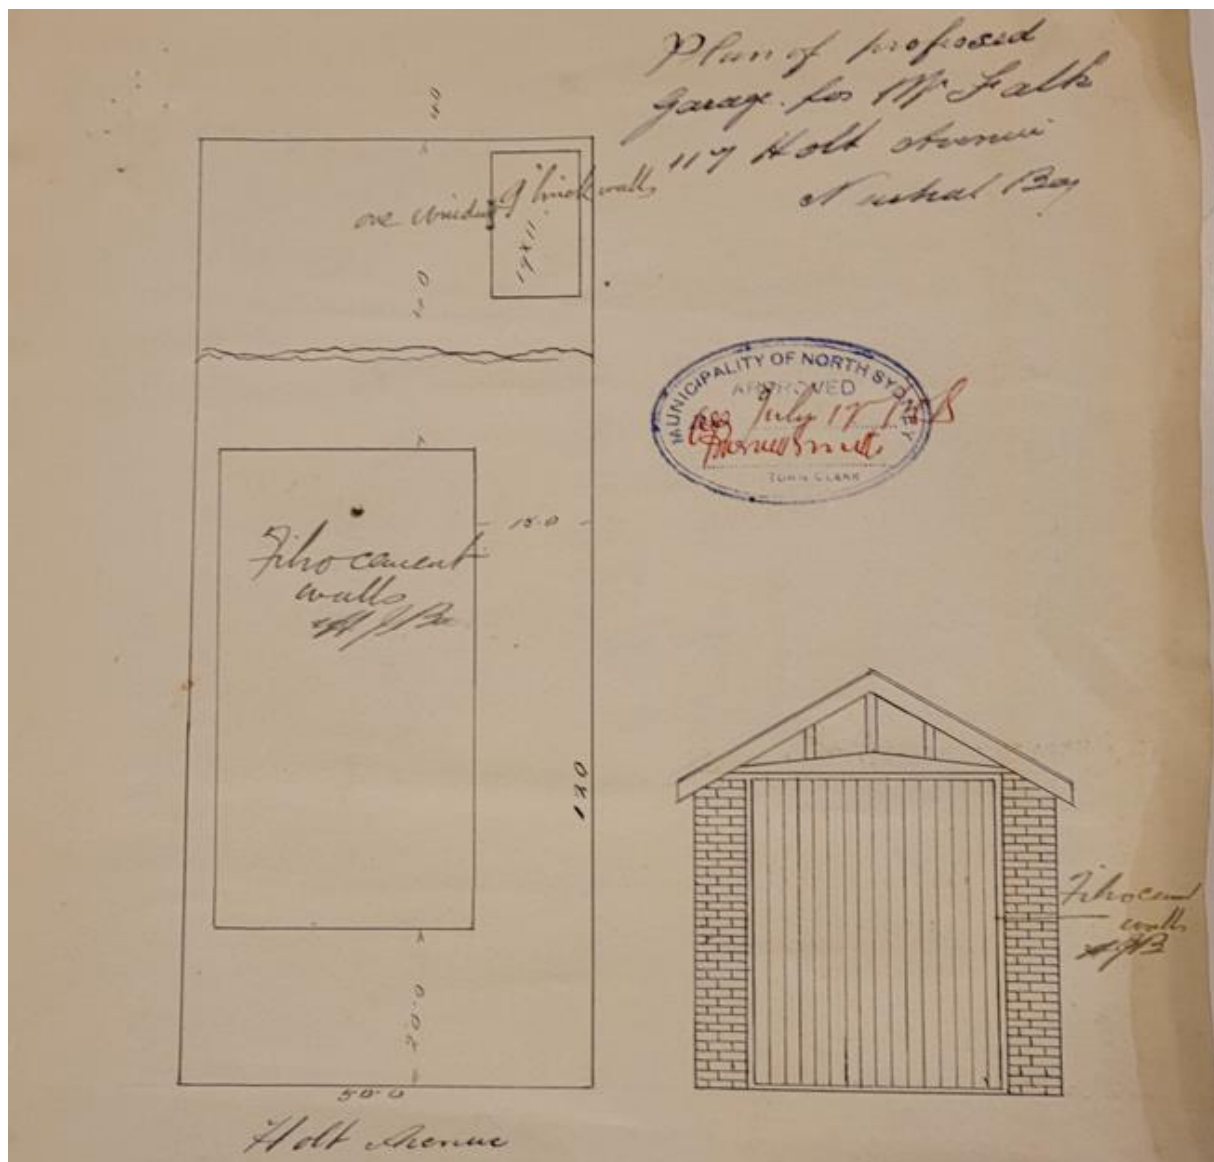 Plan of proposed
Garage for Mr Falk
117 Holt Avenue
Neutral Bay
40
one window
9" brick walls
17 x 11
MUNICIPALITY OF NORTH SYDNEY
APPROVED
July 17
TOWN CLERK
15-0
Fibrocement
walls
120
Fibrocement
walls
20-0
50-0
Holt Avenue